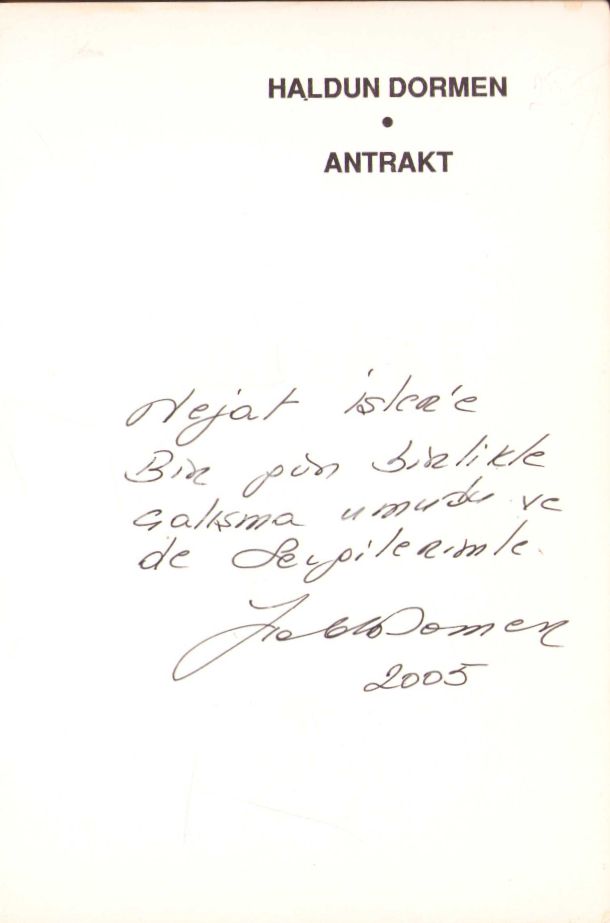 HALDUN DORMEN
•
ANTRAKT
Nejat İşler'e
Bir gün birlikte
çalışma umudu ve
de Sevgilerimle.
Haldun Dormen
2005